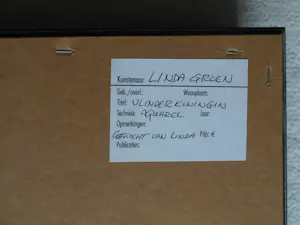 Kunstenaar: LINDA GROEN
Geb./overl.: Woonplaats:
Titel: VLINDERKONINGIN
Techniek: AQUAREL Jaar:
Opmerkingen:
GEKOCHT VAN LINDA Prijs: €
Publicaties: